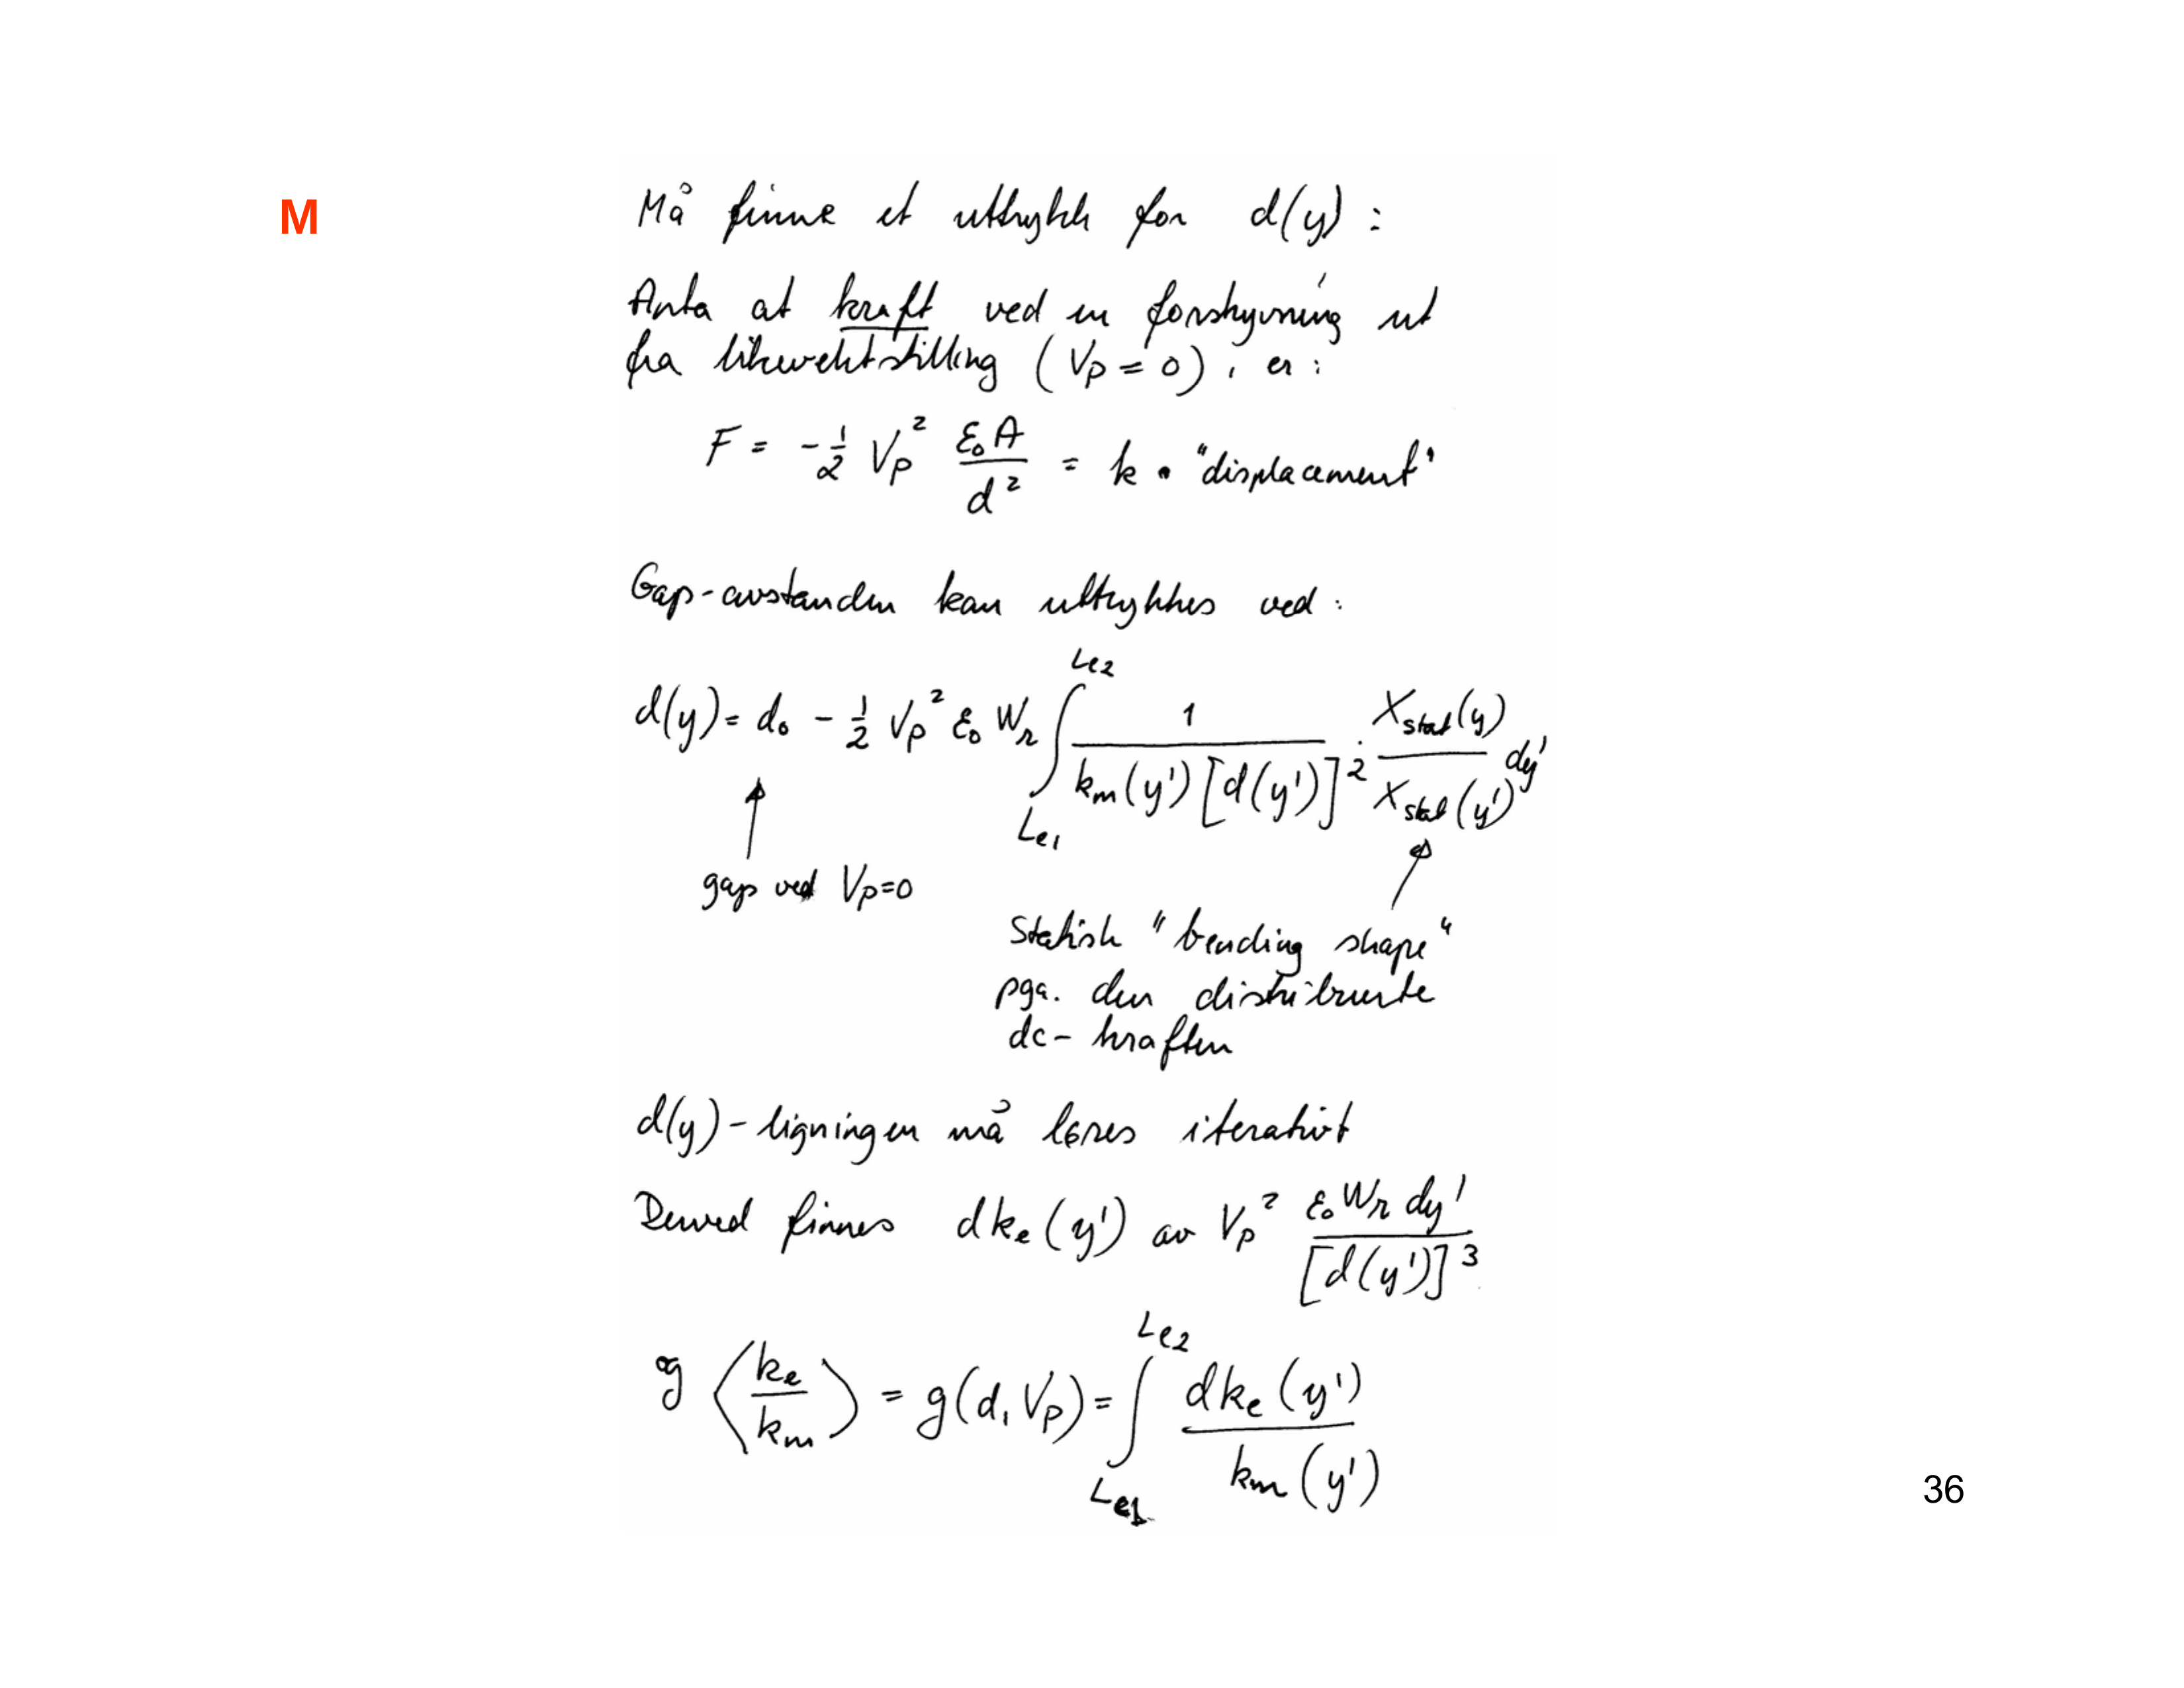 M
Må finne et uttrykk for d(y) :
Anta at kraft ved en forskyvning ut
fra likevektstilling (Vp = 0), er :
F = -½ Vp² ε₀A/d² = k • "displacement"
Gap-avstanden kan uttrykkes ved :
d(y) = d₀ - ½ Vp² ε₀ Wr ∫_{Le1}^{Le2} 1/(km(y')[d(y')]²) · Xstat(y)/Xstat(y') dy'
gap ved Vp=0
Statisk "bending shape"
pga. den distribuerte
dc-kraften
d(y)-ligningen må løses iterativt
Derved finnes dke(y') av Vp² ε₀Wr dy'/[d(y')]³
og ⟨ke/km⟩ = g(d, Vp) = ∫_{Le1}^{Le2} dke(y')/km(y')
36